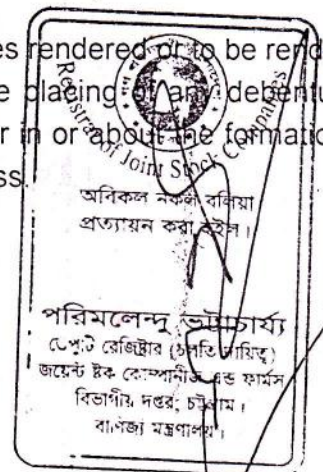 es rendered or to be rend
e placing of any debentu
r in or about the formatio
ss.
Registrar of Joint Stock Companies
অবিকল নকল বলিয়া
প্রত্যায়ন করা হইল।
পরিমলেন্দু ভট্টাচার্য্য
ডেপুটি রেজিষ্ট্রার (চলতি দায়িত্ব)
জয়েন্ট ষ্টক কোম্পানীজ এন্ড ফার্মস
বিভাগীয় দপ্তর, চট্টগ্রাম।
বাণিজ্য মন্ত্রণালয়।